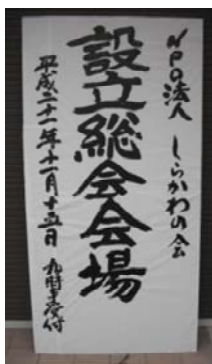 NPO法人 しらかわの会
設立総会会場
平成二十一年十一月十五日 九時半受付